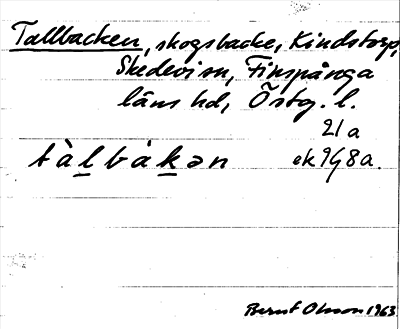 Tallbacken, skogsbacke, Kindstorp,
Skedevi sn, Finspånga
läns hd, Östg. l.
21a
tàl̲bàk̲ən ek 9G8a.
Bernt Olsson 1963